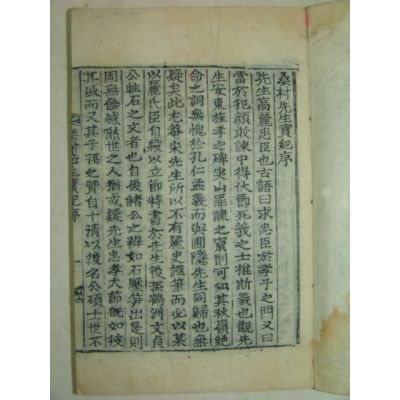 桑村先生實紀序
先生高麗忠臣也古語曰求忠臣於孝子之門又曰
當於犯顏敢諫中得伏節死義之士推斯義也觀先
生安東旌孝之碑突山罪諫之竄則可知其秋嶺絶
命之詞無愧於孔仁孟義而與圃隱先生同歸也無
疑矣此尤菴宋先生所以不有麗史誣筆而必以某
以麗氏臣自殺以立節特書於先生後孫鶴洲文貞
公牲石之文者也自後諸公之辨如石壓笋出是則
固無餘憾然世之人猶或疑先生忠孝大節旣如彼
其盛而又其子孫之賢自十淸以後名公碩士世不
桑村先生實紀序
一